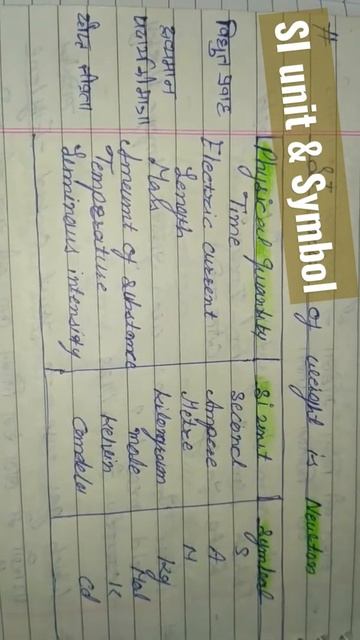 SI unit & Symbol
# of weight is Newton
Physical Quantity SI unit Symbol
Time Second S
विद्युत धारा Electric current Ampere A
Length Metre M
द्रव्यमान Mass kilogram kg
Amount of substance mole Mol
Temperature kelvin K
Luminous intensity Candela Cd